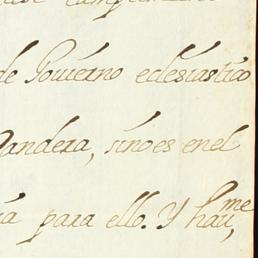 de Gouierno eclesiastico
andera, sino es en el
para ello. Y hau,me